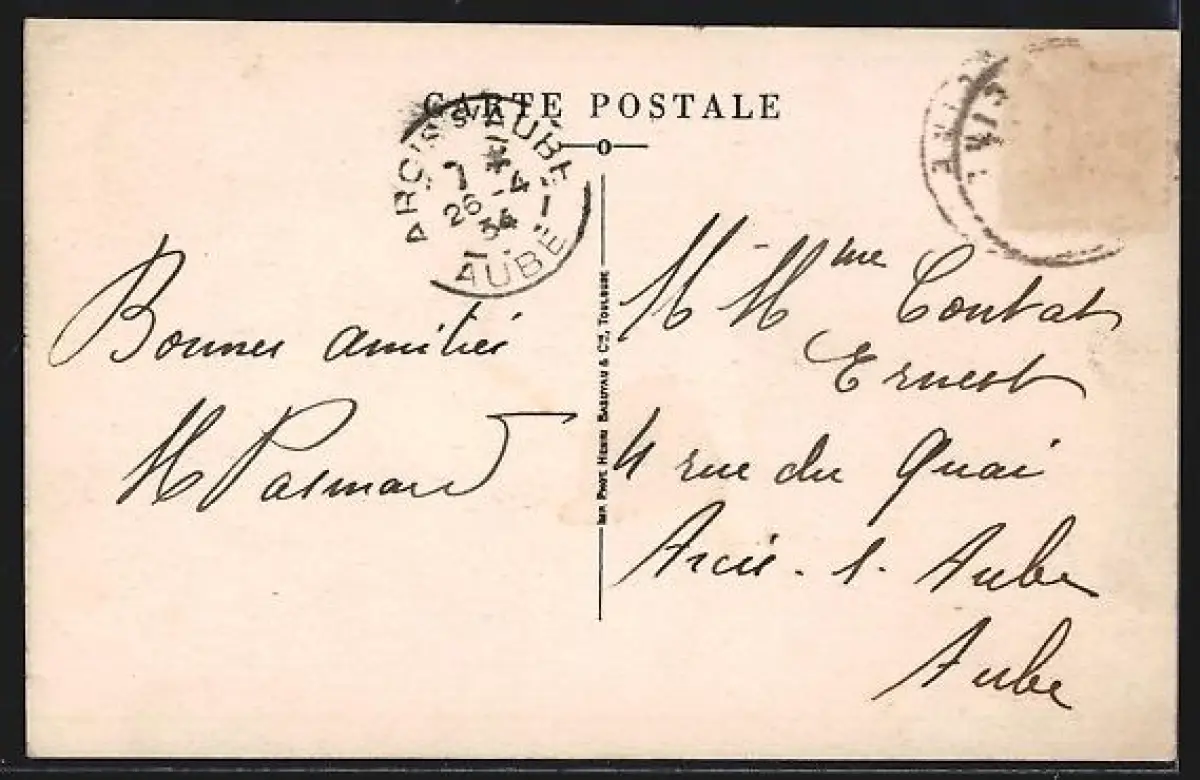 CARTE POSTALE
ARCIS S/ AUBE
7 *
26 - 4
34
AUBE
Bonnes amitiés
M Pasmard
M Mme Contat
Ernest
4 rue du Quai
Arcis - s - Aube
Aube
IMP. PHOT. HENRI BASUYAU & Cie, TOULOUSE